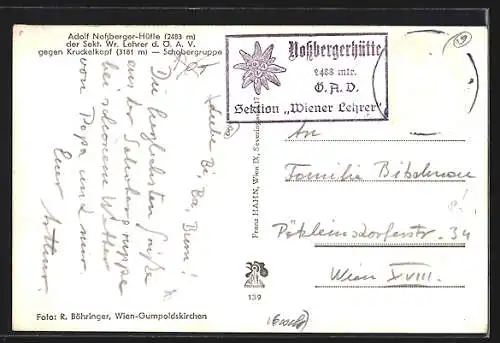 Adolf Noßberger-Hütte (2483 m)
der Sekt. Wr. Lehrer d. Ö. A. V.
gegen Kruckelkopf (3181 m) — Schobergruppe
Noßbergerhütte
2488 mtr.
Ö. A. V.
Sektion „Wiener Lehrer"
Liebe Bi, Ba, Bum!
Die herzlichsten Grüße
aus der Schobergruppe
bei schönem Wetter
von Papa und
Euer
An
Familie
Pötzleinsdorferstr. 34
Wien XVIII.
Franz HAHN, Wien IX, Severingasse 17
139
Foto: R. Böhringer, Wien-Gumpoldskirchen